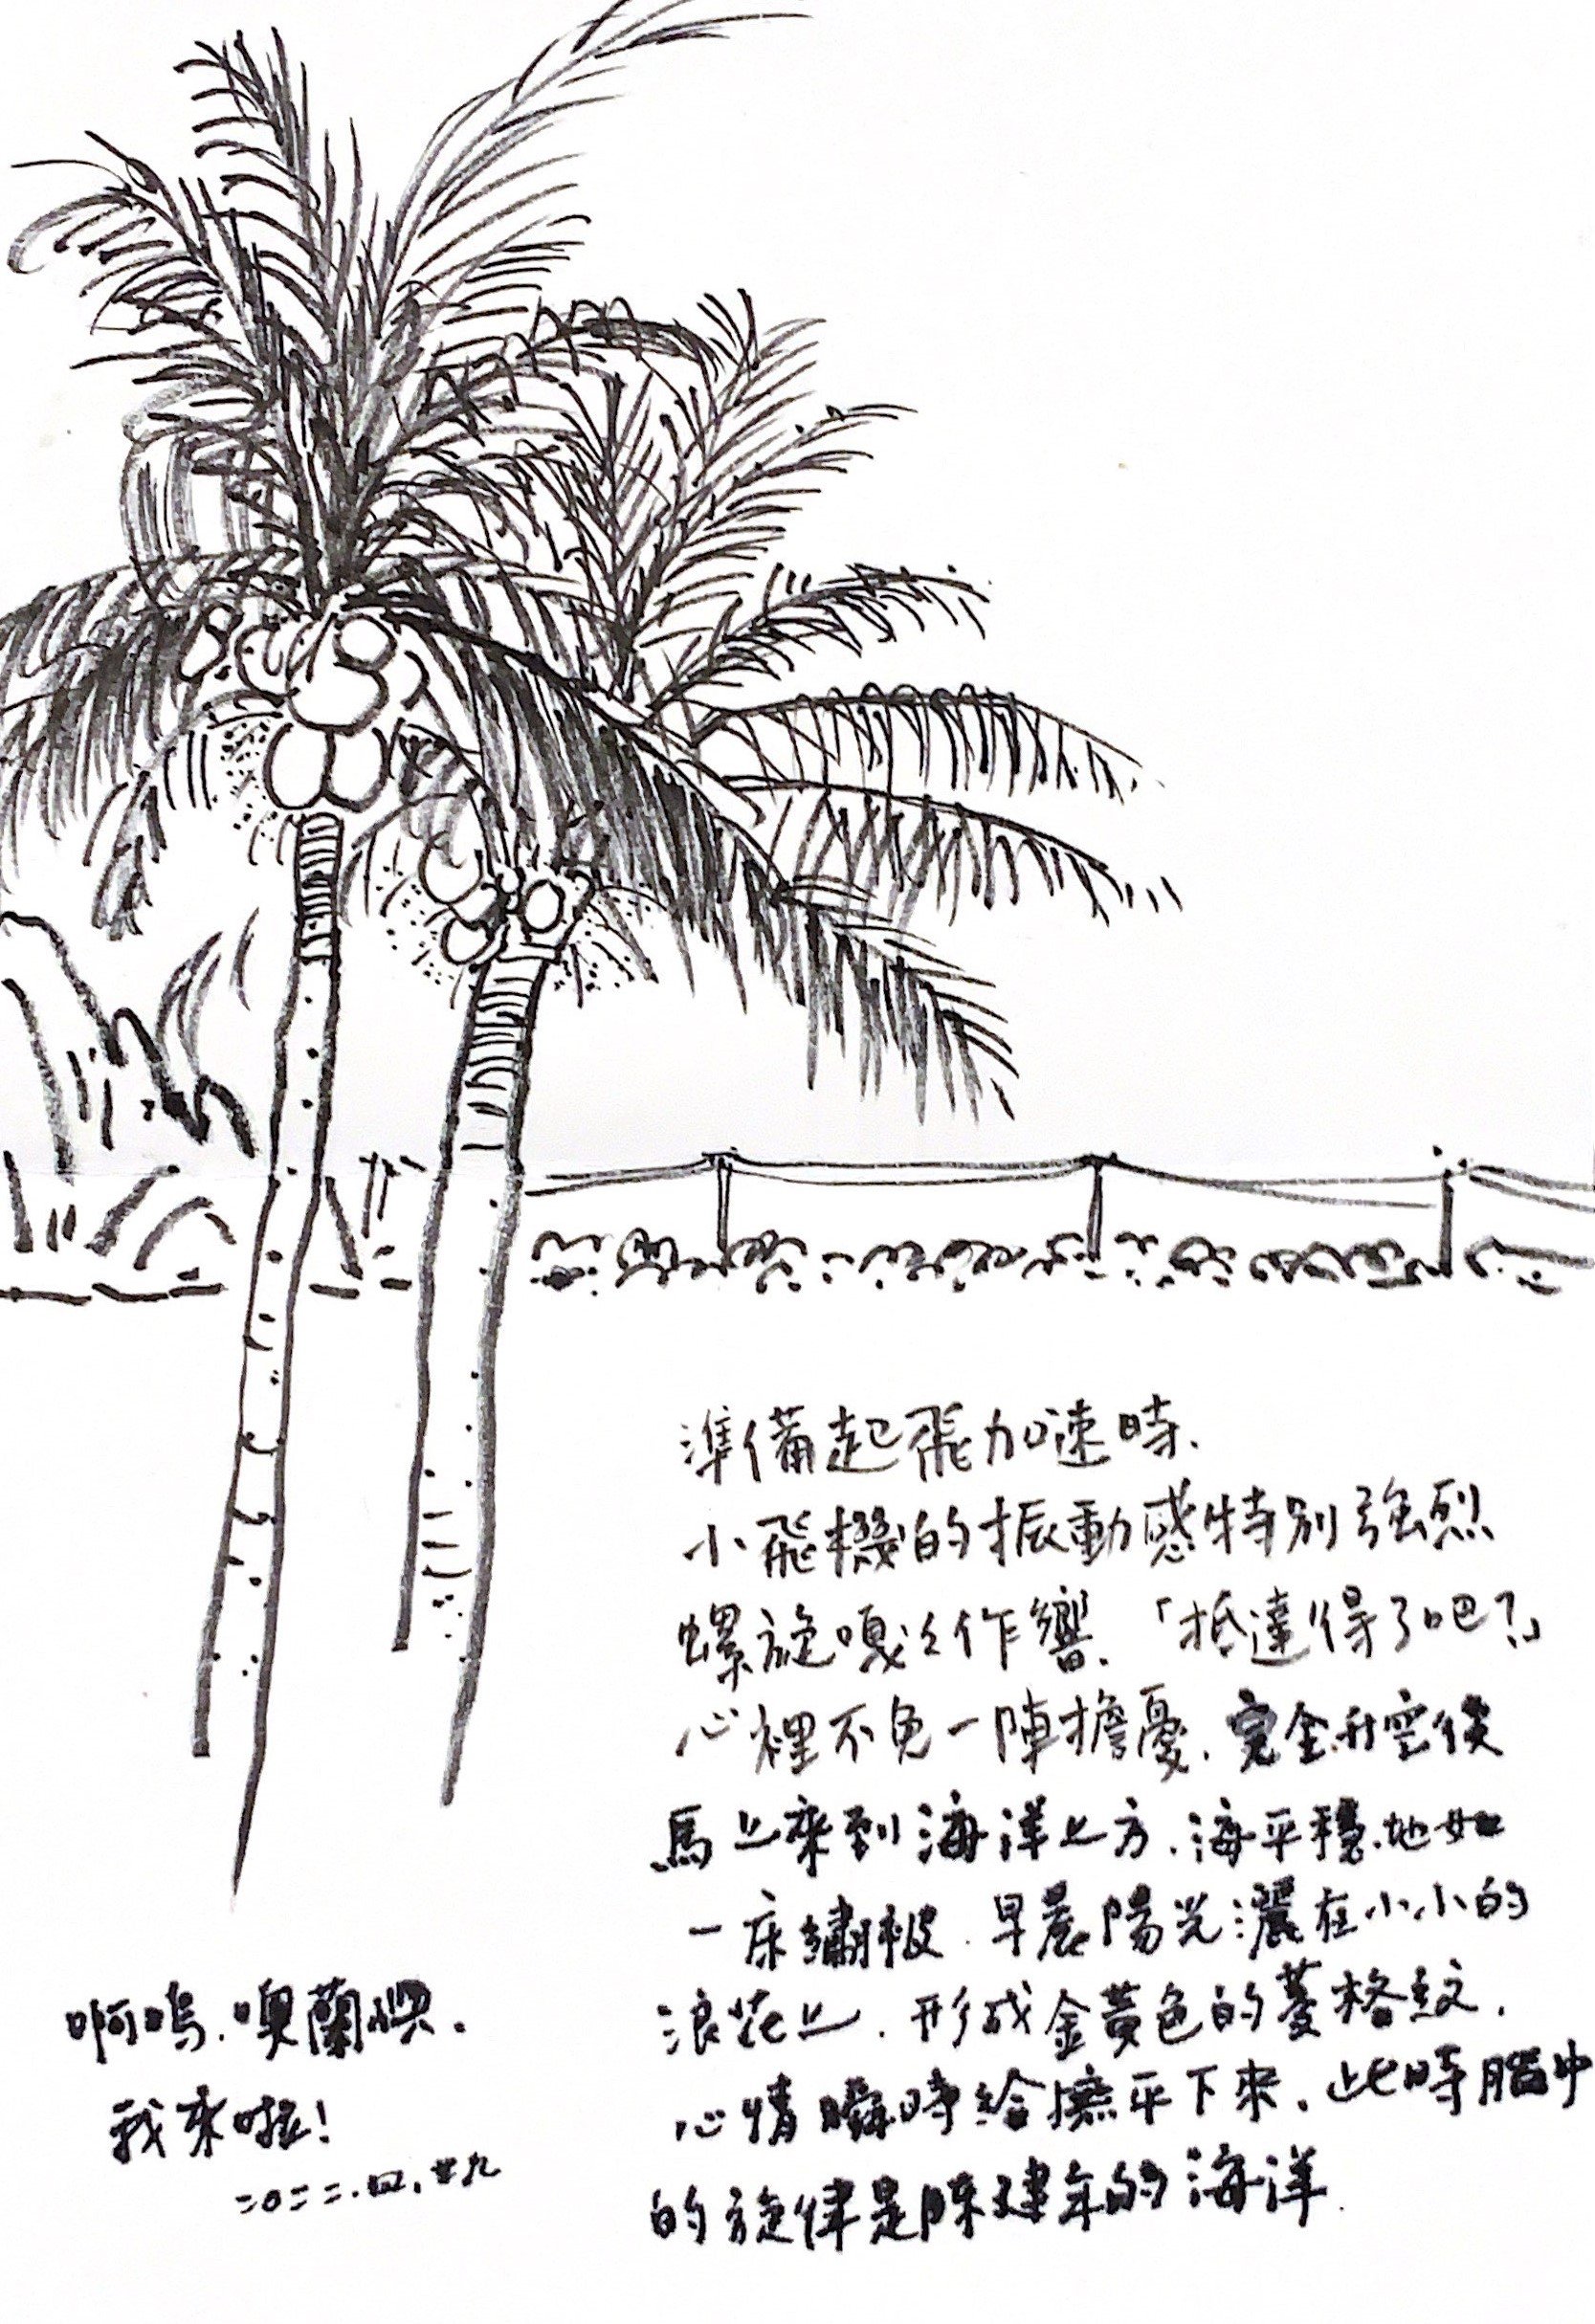 準備起飛加速時、
小飛機的振動感特別強烈
螺旋嘎々作響、「抵達得了吧？」
心裡不免一陣擔憂、完全升空後
馬上來到海洋上方、海平穩地如
一床繡被、早晨陽光灑在小小的
浪花上、形成金黃色的菱格紋、
心情瞬時給撫平下來、此時腦中
的旋律是陳建年的海洋、
啊嗚、噢蘭嶼、
我來啦！
二〇二二、四、廿九